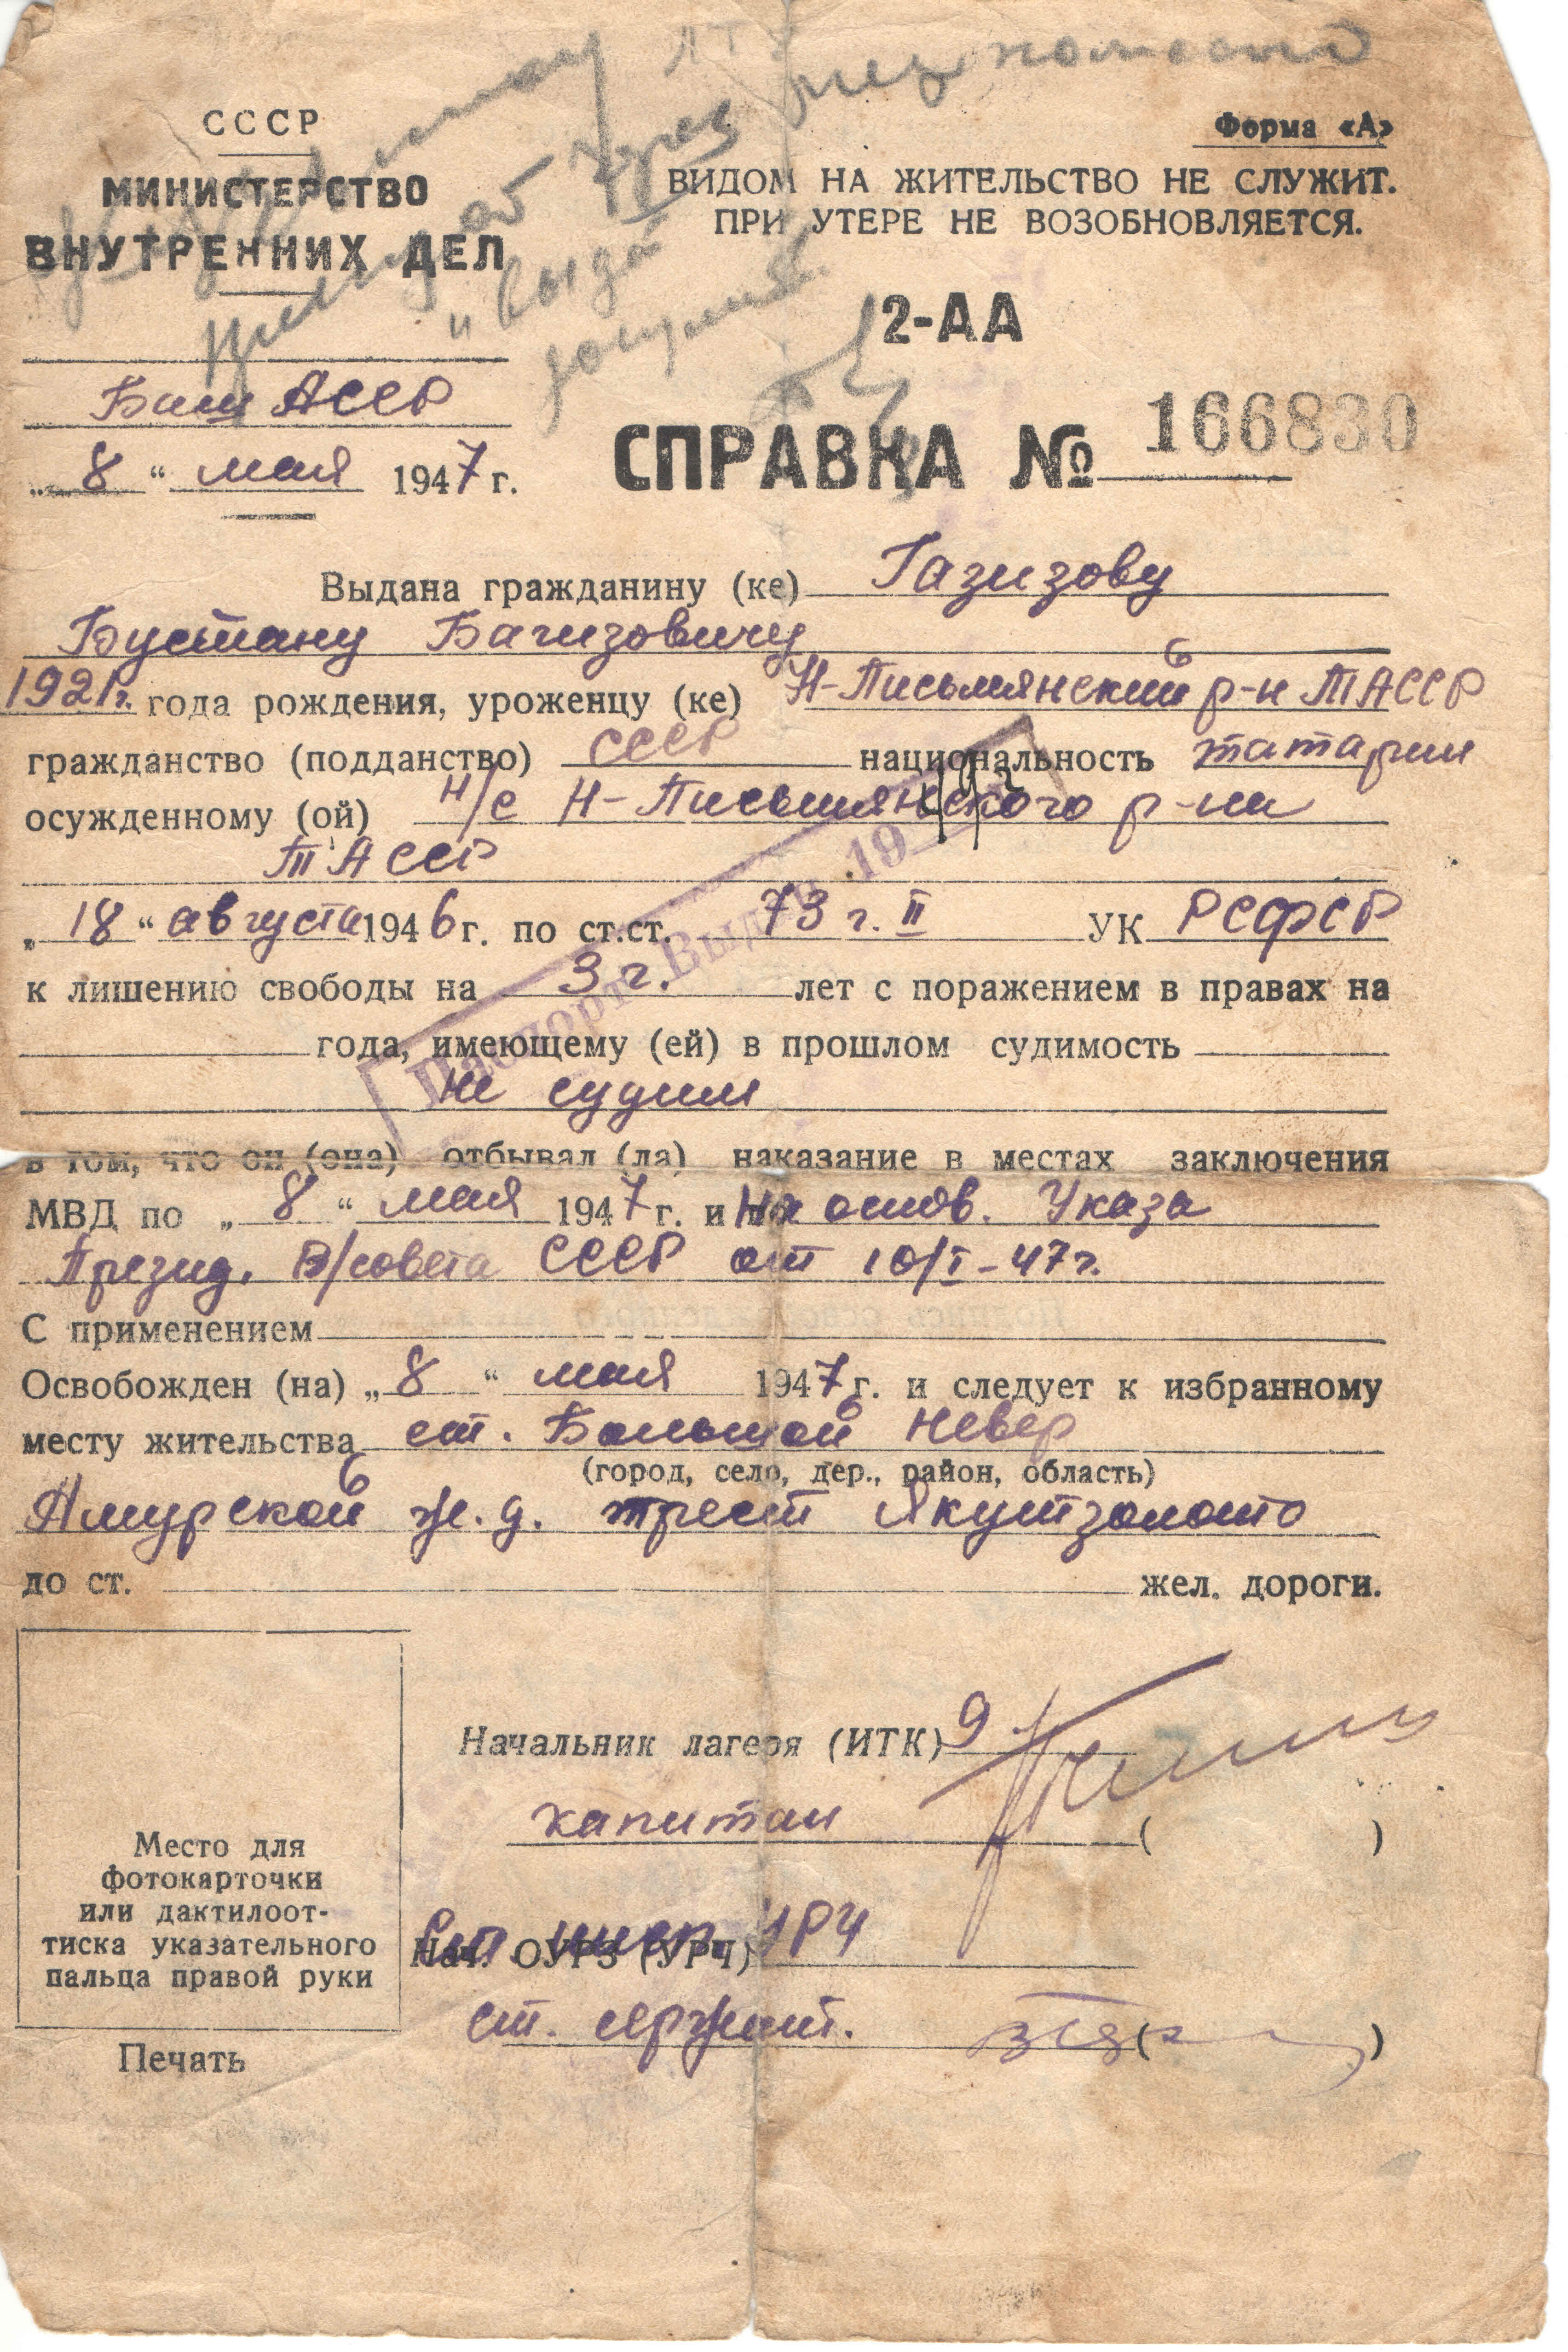 СССР
МИНИСТЕРСТВО
ВНУТРЕННИХ ДЕЛ
Баш АССР
„ 8 “ мая 1947 г.
Форма «А»
ВИДОМ НА ЖИТЕЛЬСТВО НЕ СЛУЖИТ.
ПРИ УТЕРЕ НЕ ВОЗОБНОВЛЯЕТСЯ.
2-АА
СПРАВКА № 166830
Выдана гражданину (ке) Газизову
Бустану Багизовичу
1921г. года рождения, уроженцу (ке) Н-Письмянский р-н ТАССР
гражданство (подданство) СССР национальность татарин
осужденному (ой) Н/с Н-Письмянского р-на
ТАССР
„ 18 “ августа 1946 г. по ст.ст. 73 г. II УК РСФСР
к лишению свободы на 3 г. лет с поражением в правах на
года, имеющему (ей) в прошлом судимость
не судим
Паспорт Выдан 19
в том, что он (она) отбывал (ла) наказание в местах заключения
МВД по „ 8 “ мая 1947 г. и на основ. Указа
Презид. В/совета СССР от 10/I-47г.
С применением
Освобожден (на) „ 8 “ мая 1947 г. и следует к избранному
месту жительства ст. Большой Невер
(город, село, дер., район, область)
Амурской ж.д. трест Якутзолото
до ст. жел. дороги.
Место для
фотокарточки
или дактилоот-
тиска указательного
пальца правой руки
Печать
Начальник лагеря (ИТК) 9
капитан ( )
Нач. ОУРЗ (УРЧ) Ст. инсп. УРЧ
ст. сержант. ( )